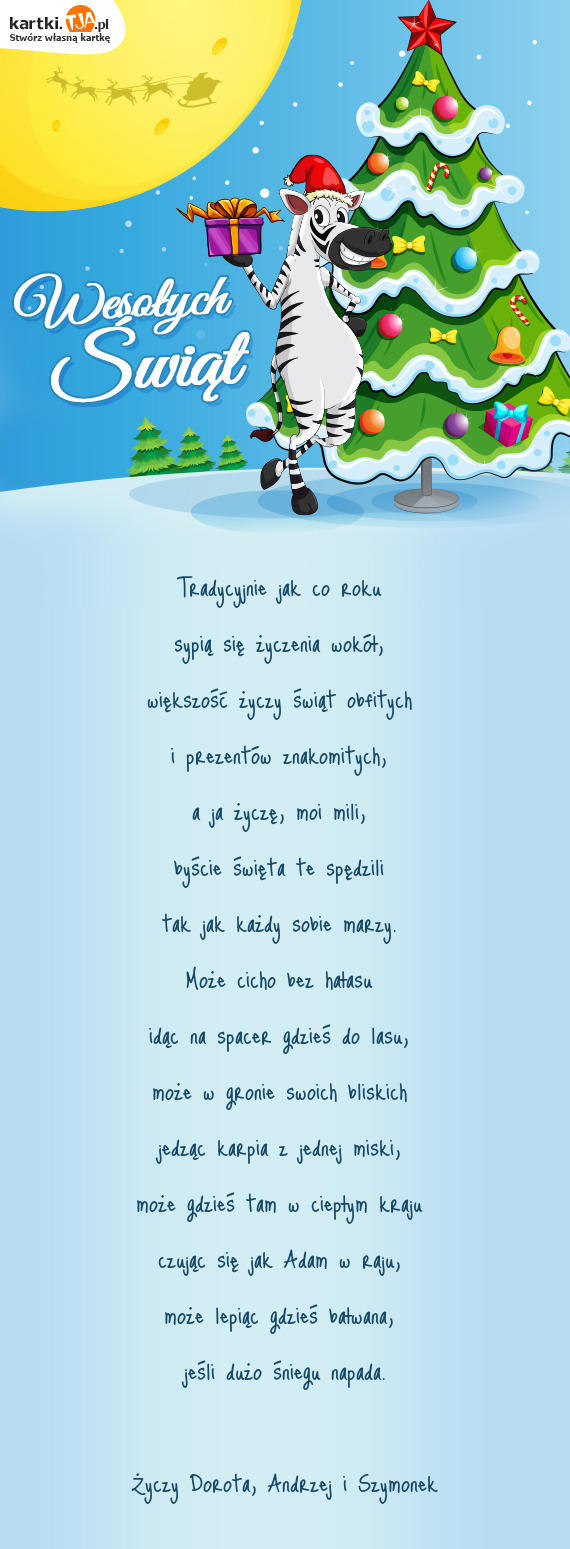 kartki.TJA.pl
Stwórz własną kartkę
Wesołych
Świąt
Tradycyjnie jak co roku
sypią się życzenia wokół,
większość życzy świąt obfitych
i prezentów znakomitych,
a ja życzę, moi mili,
byście święta te spędzili
tak jak każdy sobie marzy.
Może cicho bez hałasu
idąc na spacer gdzieś do lasu,
może w gronie swoich bliskich
jedząc karpia z jednej miski,
może gdzieś tam w ciepłym kraju
czując się jak Adam w raju,
może lepiąc gdzieś bałwana,
jeśli dużo śniegu napada.
Życzy Dorota, Andrzej i Szymonek